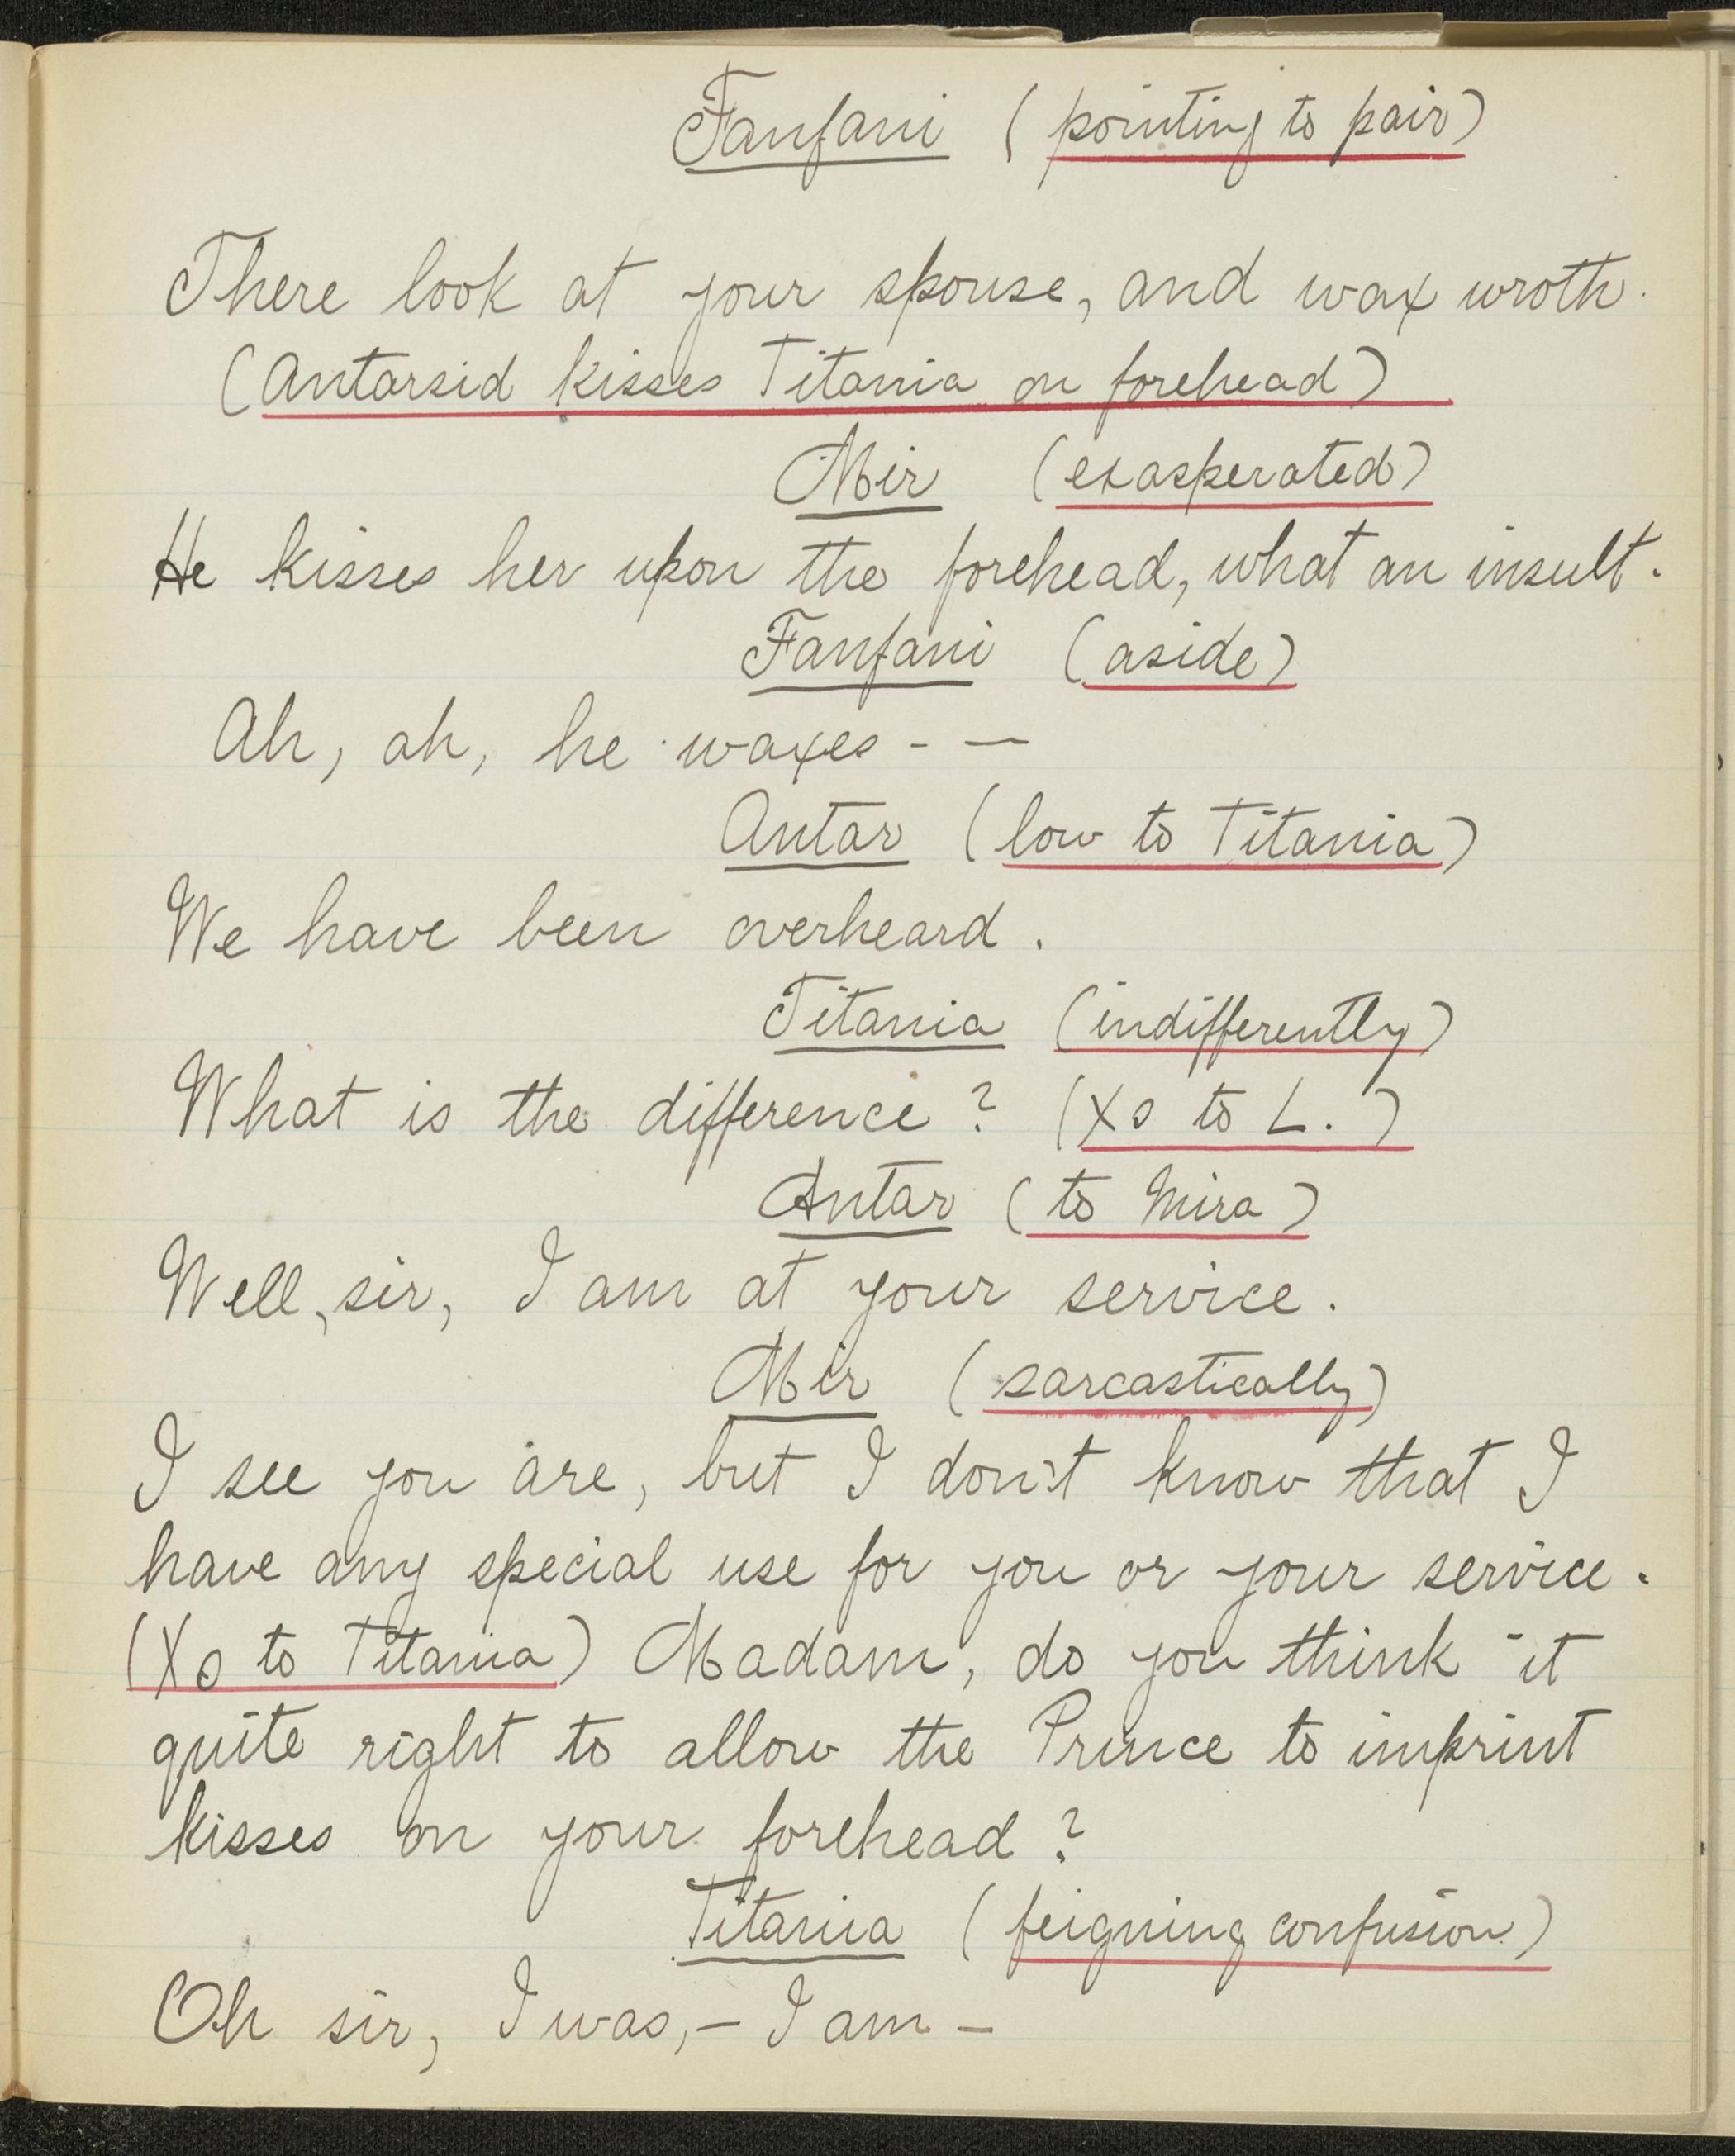 Fanfani (pointing to pair)
There look at your spouse, and wax wroth.
(Antarsid kisses Titania on forehead)
Mir (exasperated)
He kisses her upon the forehead, what an insult.
Fanfani (aside)
Ah, ah, he waxes - —
Antar (low to Titania)
We have been overheard.
Titania (indifferently)
What is the difference? (Xs to L.)
Antar (to Mira)
Well, sir, I am at your service.
Mir (sarcastically)
I see you are, but I don't know that I
have any special use for you or your service.
(Xs to Titania) Madam, do you think it
quite right to allow the Prince to imprint
kisses on your forehead?
Titania (feigning confusion)
Oh sir, I was, — I am —